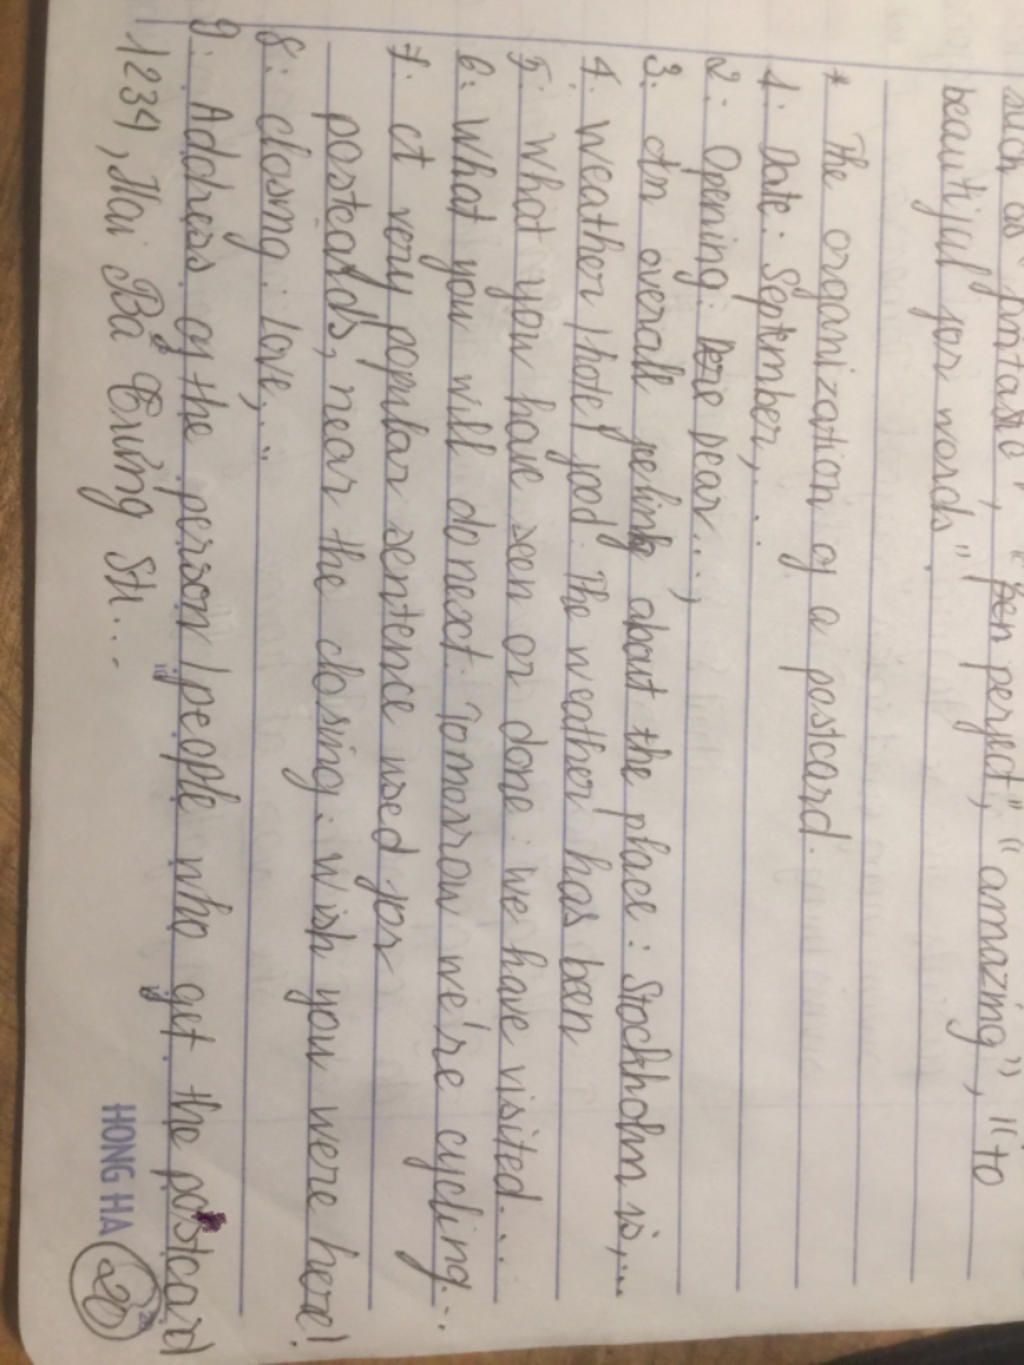 such as "fantastic", "been perfect", "amazing", "to
beautiful for words".
* The organization of a postcard.
1. Date: September, ...
2. Opening: Dear ...,
3. An overall feeling about the place: Stockholm is, ...
4. Weather / hotel / food: The weather has been
5. What you have seen or done: we have visited...
6. What you will do next: Tomorrow we're cycling...
7. A very popular sentence used for
postcards, near the closing: wish you were here!
8. closing: love, ..
9. Address of the person / people who get the postcard
1234, Hai Bà Trưng St, ...
HONG HA